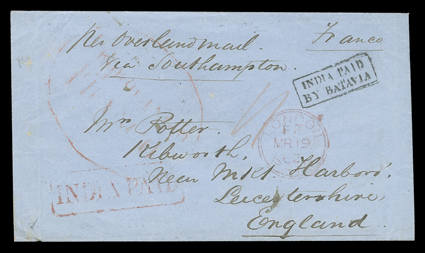 Per Overland mail.
Franco
Via Southampton.
INDIA PAID
BY BATAVIA
LONDON
MR 19
Mrs Potter.
Kibworth,
INDIA PAID
Near Mkt Harboro',
Leicestershire,
England